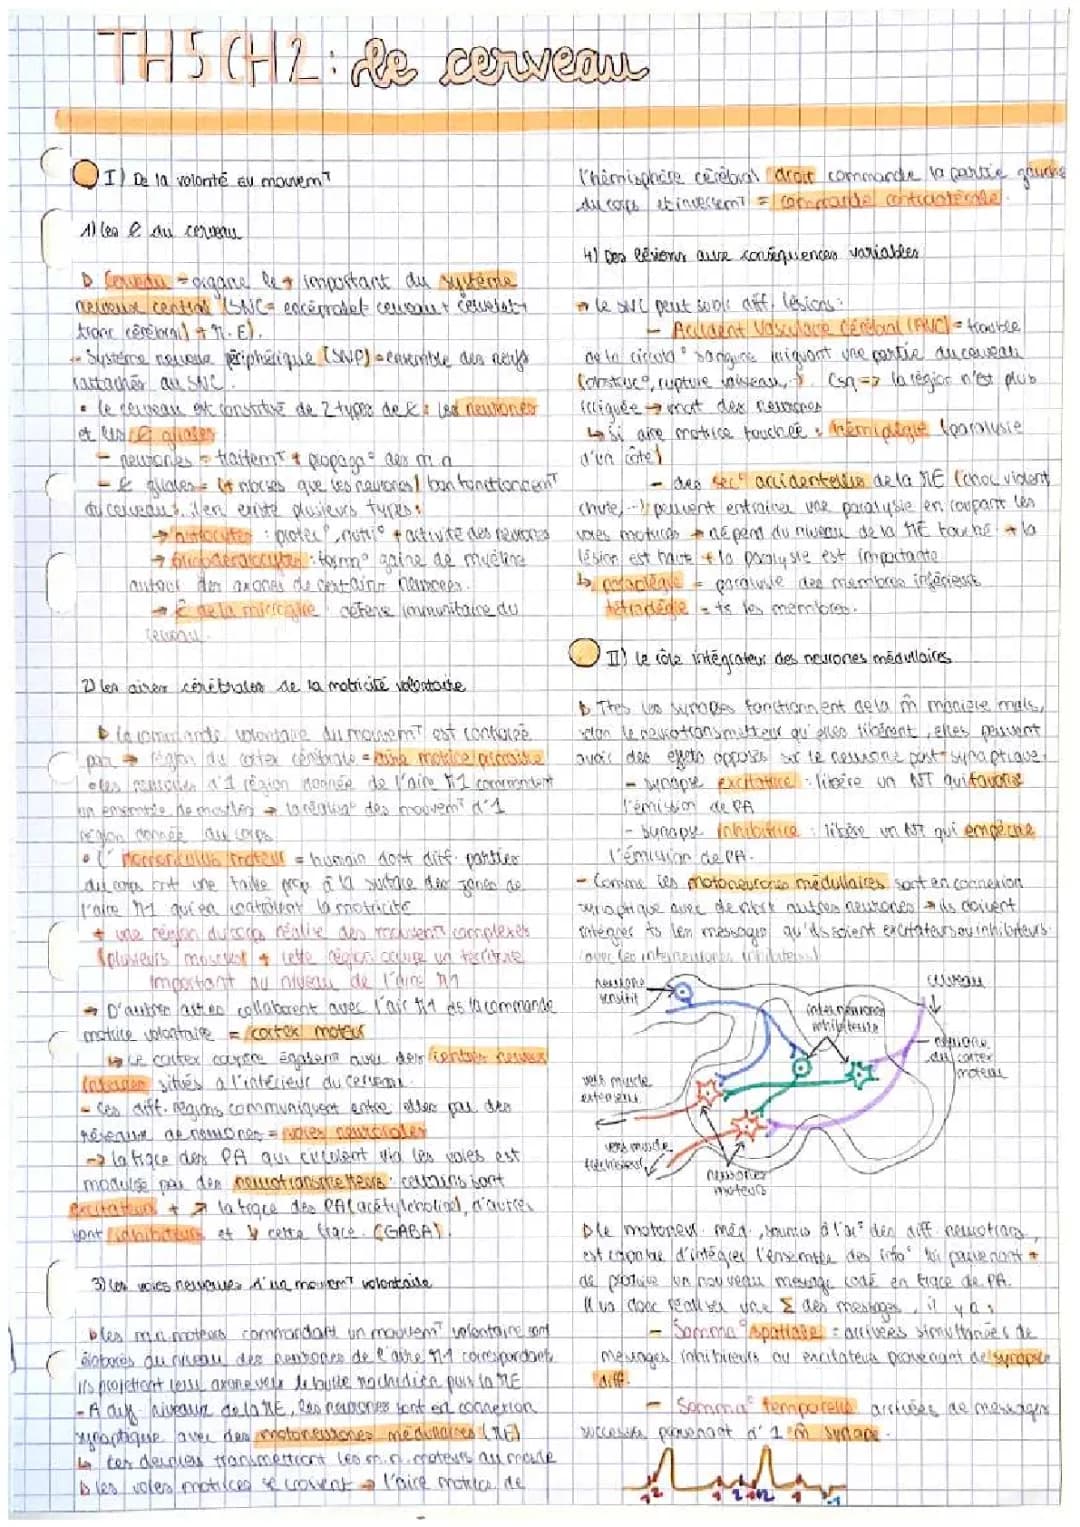 TH5 CH2 : le cerveau
I) De la volonté au mouvemᵀ
1) les ¢ du cerveau
Cerveau = organe le + important du système
nerveux central (SNC = encéphale cerveau + cervelet +
tronc cérébral) + M.E).
- Système nerveux périphérique (SNP) = ensemble des nerfs
rattachés au SNC.
• le cerveau est constitué de 2 types de ¢ : les neurones
et les ¢ gliales
- neurones = traitemᵀ + propaga° des m.n
- ¢ gliales = (+ nbrses que les neurones) bon fonctionnemᵀ
du cerveau, il en existe plusieurs types :
: protec°, nutri° + activité des neurones
→ oligodendrocytes : forma° gaine de myéline
autour des axones de certains neurones.
→ ¢ de la microglie : défense immunitaire du
cerveau.
2) les aires cérébrales de la motricité volontaire
la commande volontaire du mouvemᵀ est contrôlée
par → région du cortex cérébrale = aire motrice primaire
• les neurones d'1 région donnée de l'aire M1 commandent
un ensemble de muscles → la réalisa° des mouvemᵀ d'1
région donnée du corps
• L'homonculus moteur = humain dont diff. parties
du corps ont une taille prop à la surface des zones de
l'aire M1 qui en contrôlent la motricité
+ une région du corps réalise des mouvemᵀˢ complexes
(plusieurs muscles) + cette région occupe un territoire
important au niveau de l'aire M1
→ D'autres aires collaborent avec l'air M1 ds la commande
motrice volontaire = cortex moteur
↳ Le cortex coopère égalemᵀ avec des centres nerveux
situés à l'intérieur du cerveau.
- Ces diff. régions communiquent entre elles par des
réseaux de neurones = voies neuronales
→ la fréqce des PA qui circulent via les voies est
modulée par des neurotransmetteurs : certains sont
excitateurs + ↗ la fréqce des PA (acétylcholine), d'autres
sont inhibiteurs et ↘ cette fréqce. (GABA).
3) les voies nerveuses d'un mouvemᵀ volontaire
les m.n. moteurs commandant un mouvemᵀ volontaire sont
élaborés au niveau des neurones de l'aire M1 correspondant
ils projettent leur axone vers le bulbe rachidien puis la ME
- A diff. niveaux de la ME, les neurones sont en connexion
synaptique avec des motoneurones médullaires (ME)
↳ ces derniers transmettront les m.n. moteurs au muscle
les voies motrices se croisent → l'aire motrice de
l'hémisphère cérébral droit commande la partie gauche
du corps et inversemᵀ = commande controlatérale.
4) Des lésions aux conséquences variables
→ le SNC peut subir diff. lésions :
- Accident Vasculaire Cérébral (AVC) = trouble
de la circula° sanguine irriguant une partie du cerveau
rupture vaisseau, ...). Csq => la région n'est plus
irriguée → mort des neurones
↳ si aire motrice touchée : hémiplégie (paralysie
d'un côté)
- des sec° accidentelles de la ME (choc violent,
chute, ...) peuvent entraîner une paralysie en coupant les
voies motrices → dépend du niveau de la ME touché + la
lésion est haute + la paralysie est importante
↳ paraplégie = paralysie des membres inférieurs
tétraplégie = ts les membres.
II) le rôle intégrateur des neurones médullaires
Ttes les synapses fonctionnent de la m̂ manière mais,
selon le neurotransmetteur qu'elles libèrent, elles peuvent
avoir des effets opposés sur le neurone post-synaptique.
- synapse excitatrice : libère un NT qui favorise
l'émission de PA
- synapse inhibitrice : libère un NT qui empêche
l'émission de PA.
- Comme les motoneurones médullaires sont en connexion
synaptique avec de nbrx autres neurones → ils doivent
intégrer ts les messages qu'ils soient excitateurs ou inhibiteurs.
(avec les interneurones inhibiteurs)
neurone
sensitif
cerveau
interneurones
inhibiteurs
du cortex
moteur
vers muscle
extenseur
vers muscle
fléchisseur
neurones
moteurs
le motoneur. méd., soumis à l'ac° des diff. neurotrans,
est capable d'intégrer l'ensemble des info° lui parvenant +
de produire un nouveau message codé en fréqce de PA.
Il va donc réaliser une Σ des messages, il y a :
- Somma° spatiale : arrivées simultanées de
messages inhibiteurs ou excitateurs provenant de synapse
diff.
- Somma° temporelle : arrivées de messages
successifs provenant d'1 m̂ synapse.